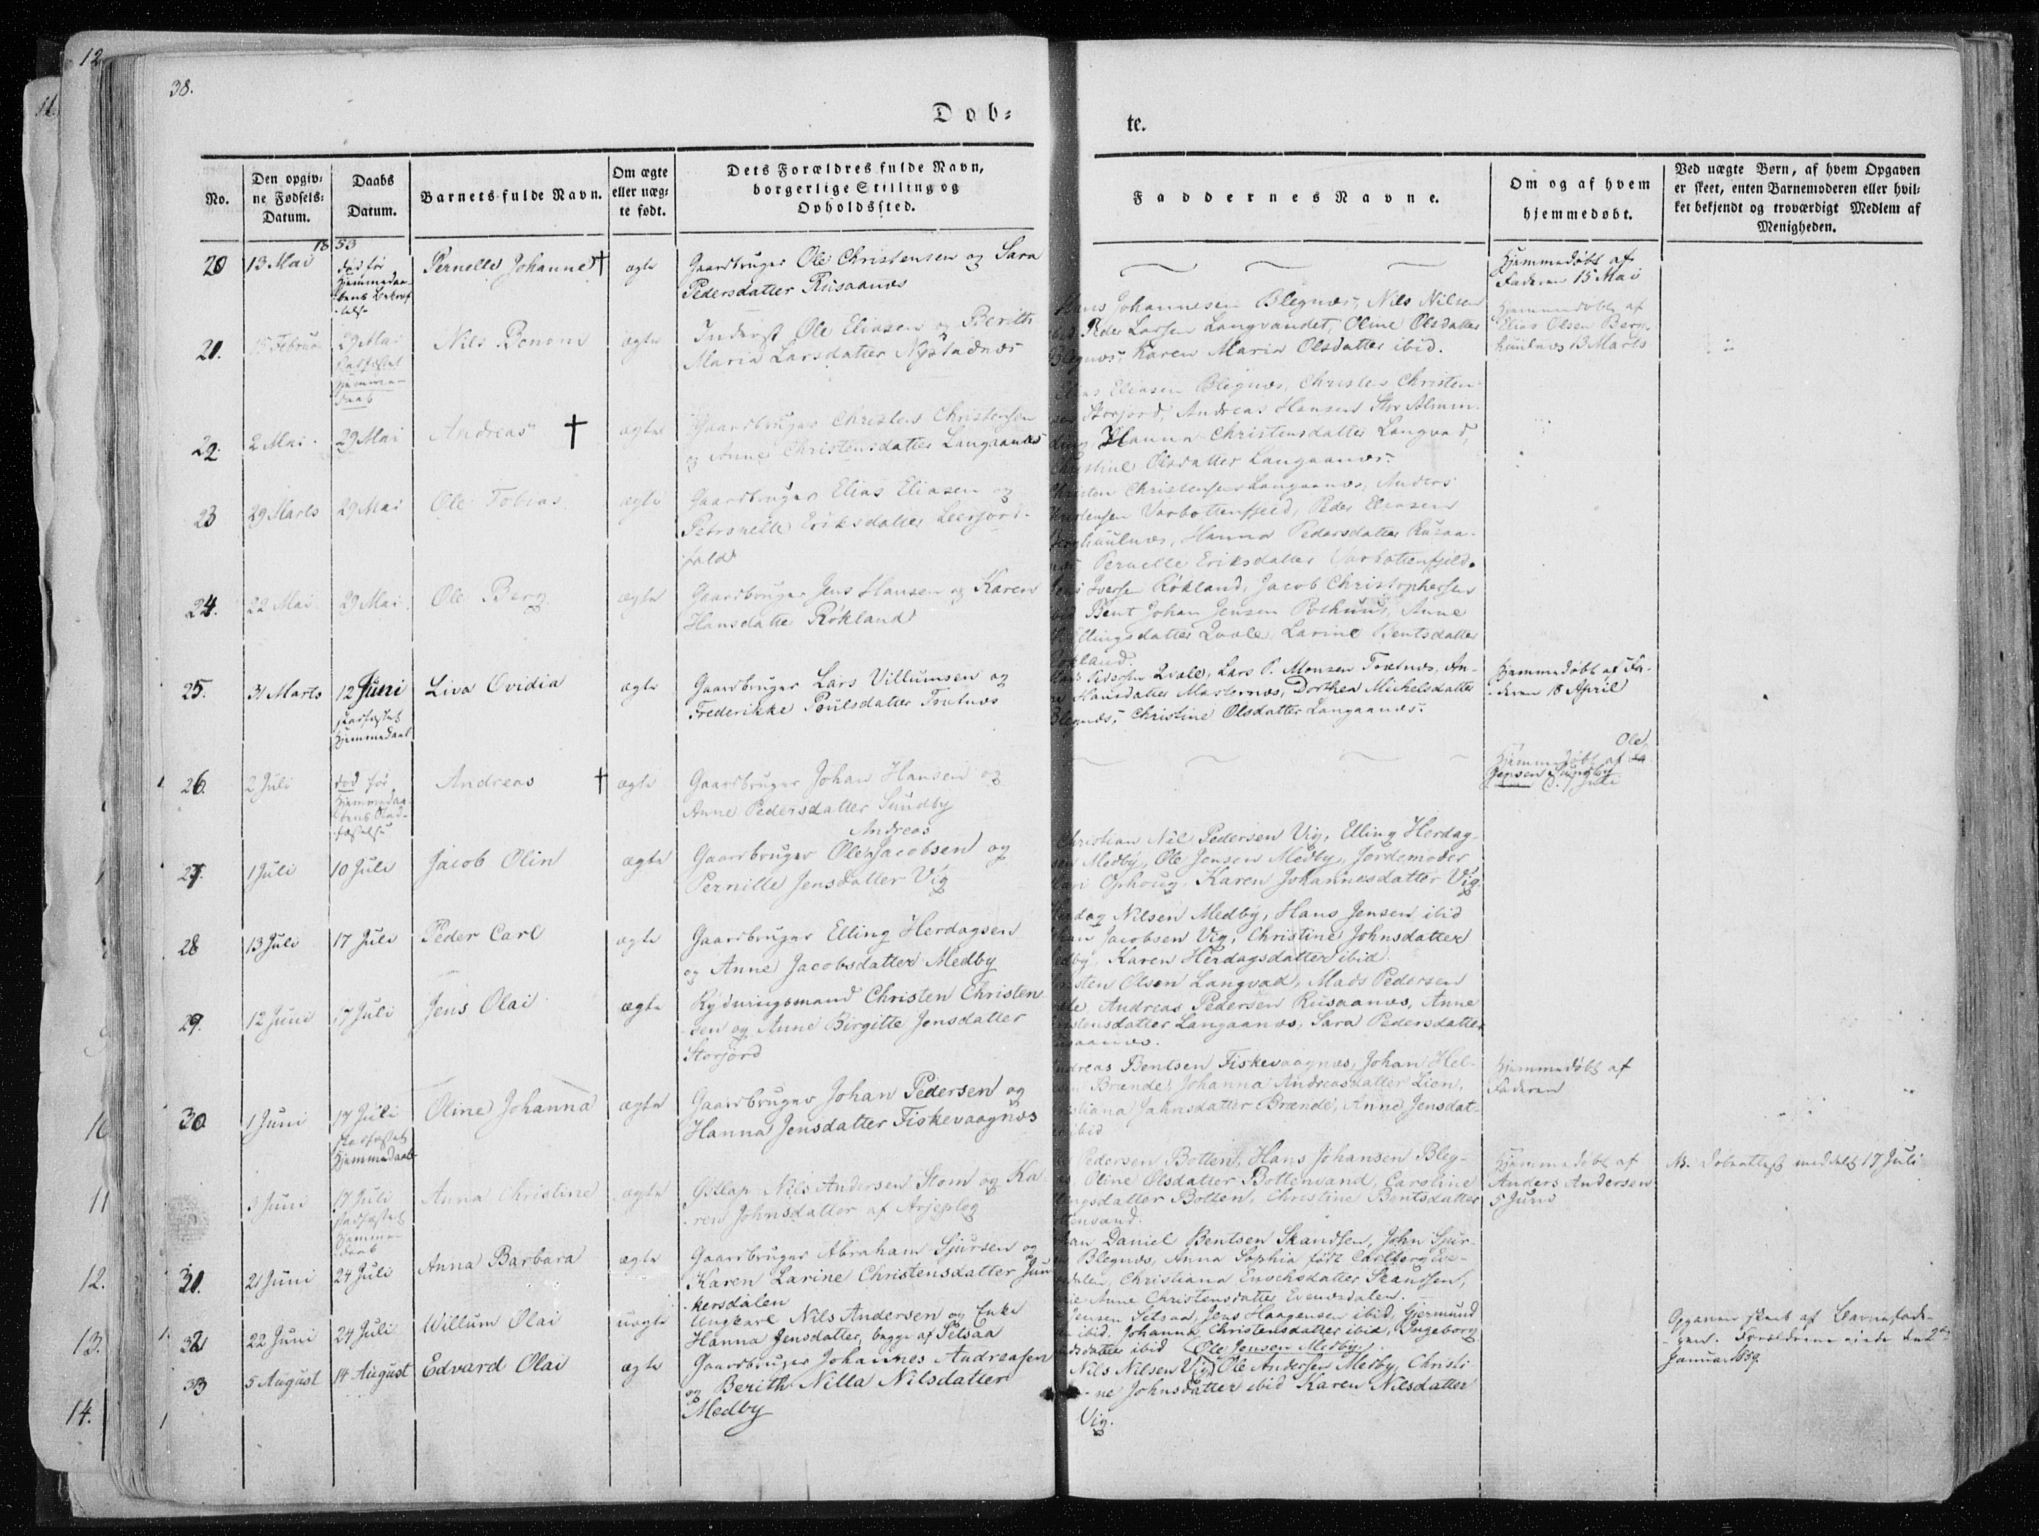 12
11.
38.
Døb=
te.
No.
Den opgiv=
ne Fødsels=
Datum.
Daabs
Datum.
Barnets fulde Navn.
Om ægte
eller uæg=
te født.
Dets Forældres fulde Navn,
borgerlige Stilling og
Opholdssted.
Faddernes Navne.
Om og af hvem
hjemmedøbt.
Ved uægte Børn, af hvem Opgaven
er skeet, enten Barnemoderen eller hvil=
ket bekjendt og troværdigt Medlem af
Menigheden.
1853
20 13 Mai
død før
Hjemmedaa-
bens
Pernelle Johanne † ægte
Gaardbruger Ole Christensen og Sara
Pedersdatter Rusaanæs
Hjemmedøbt af
Faderen 15 Mai
21. Februar
29 Mai
stadfæstet
Hjemme-
daab
Nils Benoni ægte
Inderst Ole Eliasen og Berith
Maria Larsdatter Nystadnæs
Hans Johannesen Blegnæs, Nils Nilsen
Peder Larsen Langvandet, Oline Olsdatter
Blegnæs, Karen Maria Olsdatter ibid.
Hjemmedøbt af
Elias Olsen Berg-
huulnæs 13 Marts
22. 2 Mai 29 Mai Andreas † ægte
Gaardbruger Christen Christensen
og Anne Christensdatter Langaanæs
Eliasen Blegnæs, Christen Christen-
sen Storjord, Andreas Hansen Stor Almin-
ding Hanna Christensdatter Langvad,
Christine Olsdatter Langaanæs.
23 29 Marts 29 Mai Ole Tobias ægte
Gaardbruger Elias Eliasen og
Petronelle Eriksdatter Leerjord-
fald
Christen Christensen Langaanæs, Anders
Christensen Vorbottenfjeld, Peder Eliasen
Berghuulnæs, Hanna Pedersdatter Rusaa-
næs Pernelle Eriksdatter Vorbottenfjeld.
24. 22 Mai 29 Mai Ole Berg ægte
Gaardbruger Jens Hansen og Karen
Hansdatte Røkland
Iversen Røkland, Jacob Christophersen
Bent Johan Jensen Pothuus, Anne
Ellingsdatter Qvale, Larine Bentsdatter
Røkland.
25. 31 Marts 12 Juni
stadfæstet
Hjemmedaab
Liva Ovidia ægte
Gaardbruger Lars Villumsen og
Frederikke Poulsdatter Toutnæs
Pedersen Qvale, Lars P. Monsen Toutnæs, An-
ne Hansdatter Masternæs, Dorthea Michelsdatter
Blegnæs, Christine Olsdatter Langaanæs.
Hjemmedøbt af Fa-
deren 18 April
26. 2 Juli
død før
Hjemmedaa-
bens Stad-
fæstelse
Andreas † ægte
Gaardbruger Johan Hansen og
Anne Pedersdatter Sundby
Ole
Hjemmedøbt af Fa
Jensen Sundby
Juli
27. 1 Juli 10 Juli Jacob Olin ægte
Andreas
Gaardbruger Ole Jacobsen og
Pernille Jensdatter Vig
Christian Nil Pedersen Vig, Elling Herdag-
sen Medby, Ole Jensen Medby, Jordemoder
Ophoug, Karen Johannesdatter Vig
28 13 Juli 17 Juli Peder Carl ægte
Gaardbruger Elling Herdagsen
og Anne Jacobsdatter Medby
Herdag Nilsen Medby, Hans Jensen ibid
Johan Jacobsen Vig, Christine Johnsdatter
Medby, Karen Herdagsdatter ibid.
29. 12 Juni 17 Juli Jens Olai ægte
Rydningsmand Christen Christen
sen og Anne Birgitte Jensdatter
Storjord
Christen Olsen Langvad, Mads Pedersen
Andreas Pedersen Rusaanæs, Anne
Christensdatter Langaanæs, Sara Pedersdatter
Rusaanæs.
30 1 Juni 17 Juli
stadfæstet
Hjemmedaab
Oline Johanna ægte
Gaardbruger Johan Pedersen og
Hanna Jensdatter Fiskevaagnæs
Andreas Bentsen Fiskevaagnæs, Johan Hel-
Brænde, Johanna Andreasdatter Lien,
Christiana Jahnsdatter Brænde, Anne Jensdat-
ter ibid
Hjemmedøbt af
Faderen
3 Juni 17 Juli
stadfæstet
Hjemme-
daab
Anna Christine ægte
Østlap Nils Andersen Stom og Ka-
ren Johnsdatter af Arjeplog
Pedersen Botten, Hans Johansen Bleg-
næs, Oline Olsdatter Bottensand, Caroline
Ellingsdatter Botten, Christine Bentsdatter
Bottensand.
Hjemmedøbt af
Anders Andersen
5 Juni
N. Dobattest meddelt 17 Juli
31. 21 Juni 24 Juli Anna Barbara ægte
Gaardbruger Abraham Sjursen og
Karen Larine Christensdatter Jun
kersdalen
Daniel Bentsen Skandsen, John Sjur-
sen Blegnæs, Anna Sophia født Carlberg Eve-
nesdalen, Christiana Enochsdatter Skandsen,
Anne Christensdatter Evenæsdalen.
32 22 Juni 24 Juli Willum Olai uægte
Ungkarl Nils Andersen og Enke
Hanna Jensdatter, begge af Setsaa
Jensen Setsaa, Jens Haagensen ibid, Gjermund
ibid. Johanna Christensdatter ibid, Ingeborg
datter ibid
Opgaven skeet af Barnefade-
ren. Forældrene viede den 2den
Januar 1859.
33 5 August 14 August Edvard Olai ægte
Gaardbruger Johannes Andreasen
og Berith Nilla Nilsdatter
Medby
Ole Jensen Medby,
Nils Nilsen Vig, Ole Andersen Medby, Christi
ne Johnsdatter ibid Karen Nilsdatter
Vig.
10
11
12.
13.
14.